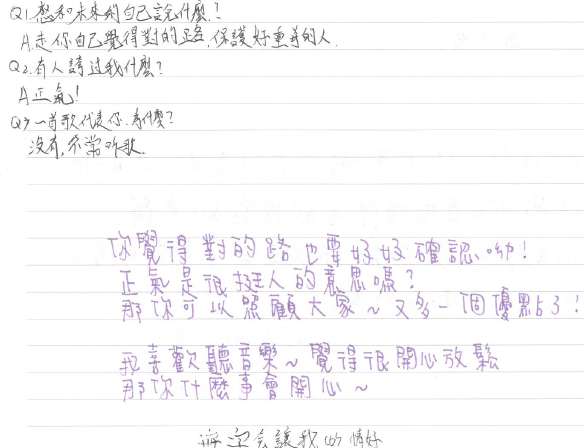 Q1.想和未來的自己說什麼?
A.走你自己覺得對的路,保護好重要的人.
Q2.有人誇过我什麼?
A正氣!
Q3 一首歌代表你.為什麼?
沒有,不常听歌.
你覺得對的路也要好好確認呦!
正氣是很挺人的意思嗎?
那你可以照顧大家~又多一個優點了!
我喜歡聽音樂~覺得很開心放鬆
那你什麼事會開心~
會讓我的情好